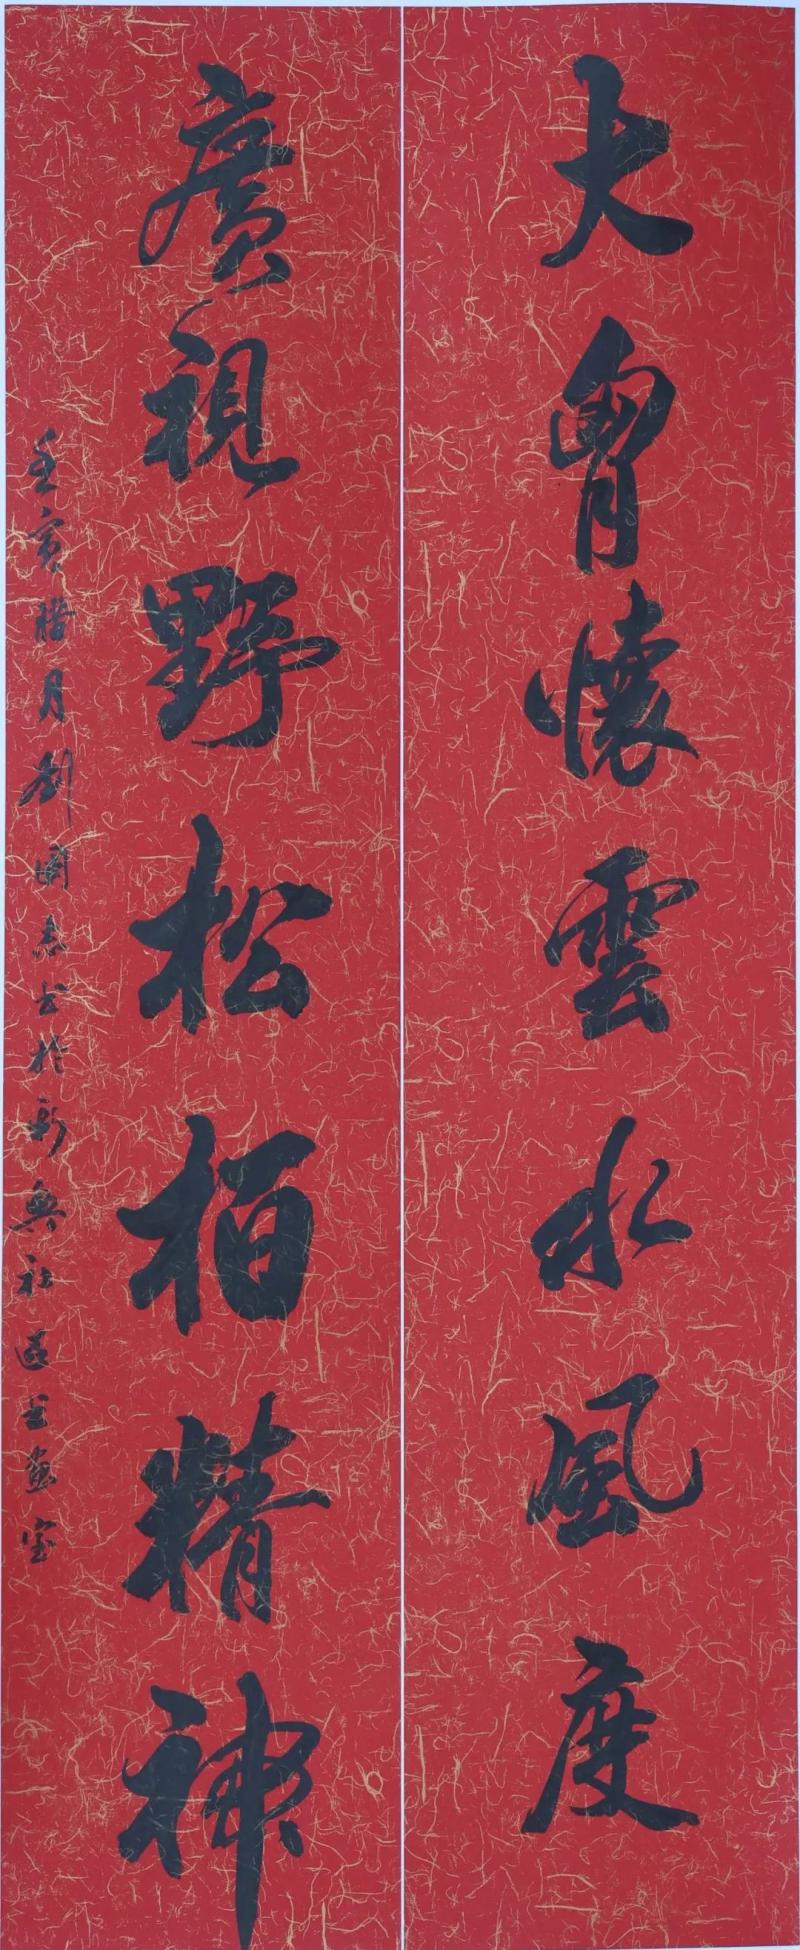 大胷懷雲水風度
廣視野松柏精神
壬寅腊月劉國志书於新興社區书畫室